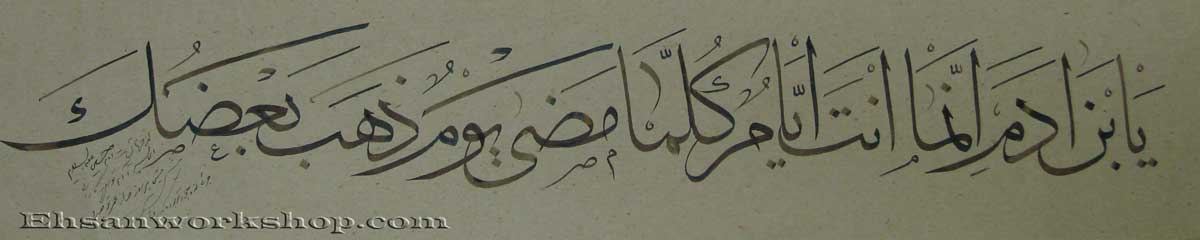 يَا بْنَ ادَمَ اِنَّمَا اَنْتَ اَيَّامٌ كُلَّمَا مَضَى يَوْمٌ ذَهَبَ بَعْضُكَ
Ehsanworkshop.com